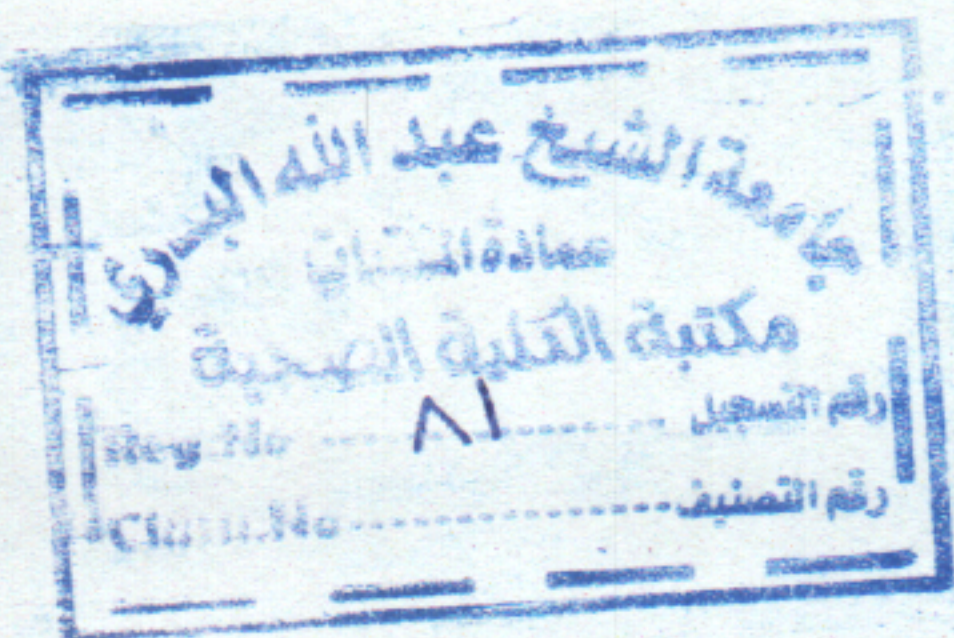 جامعة الشيخ عبد الله البدري
عمادة
مكتبة الكلية الصحية
رقم التسجيل ٨١ Reg.No
رقم التصنيف Class.No